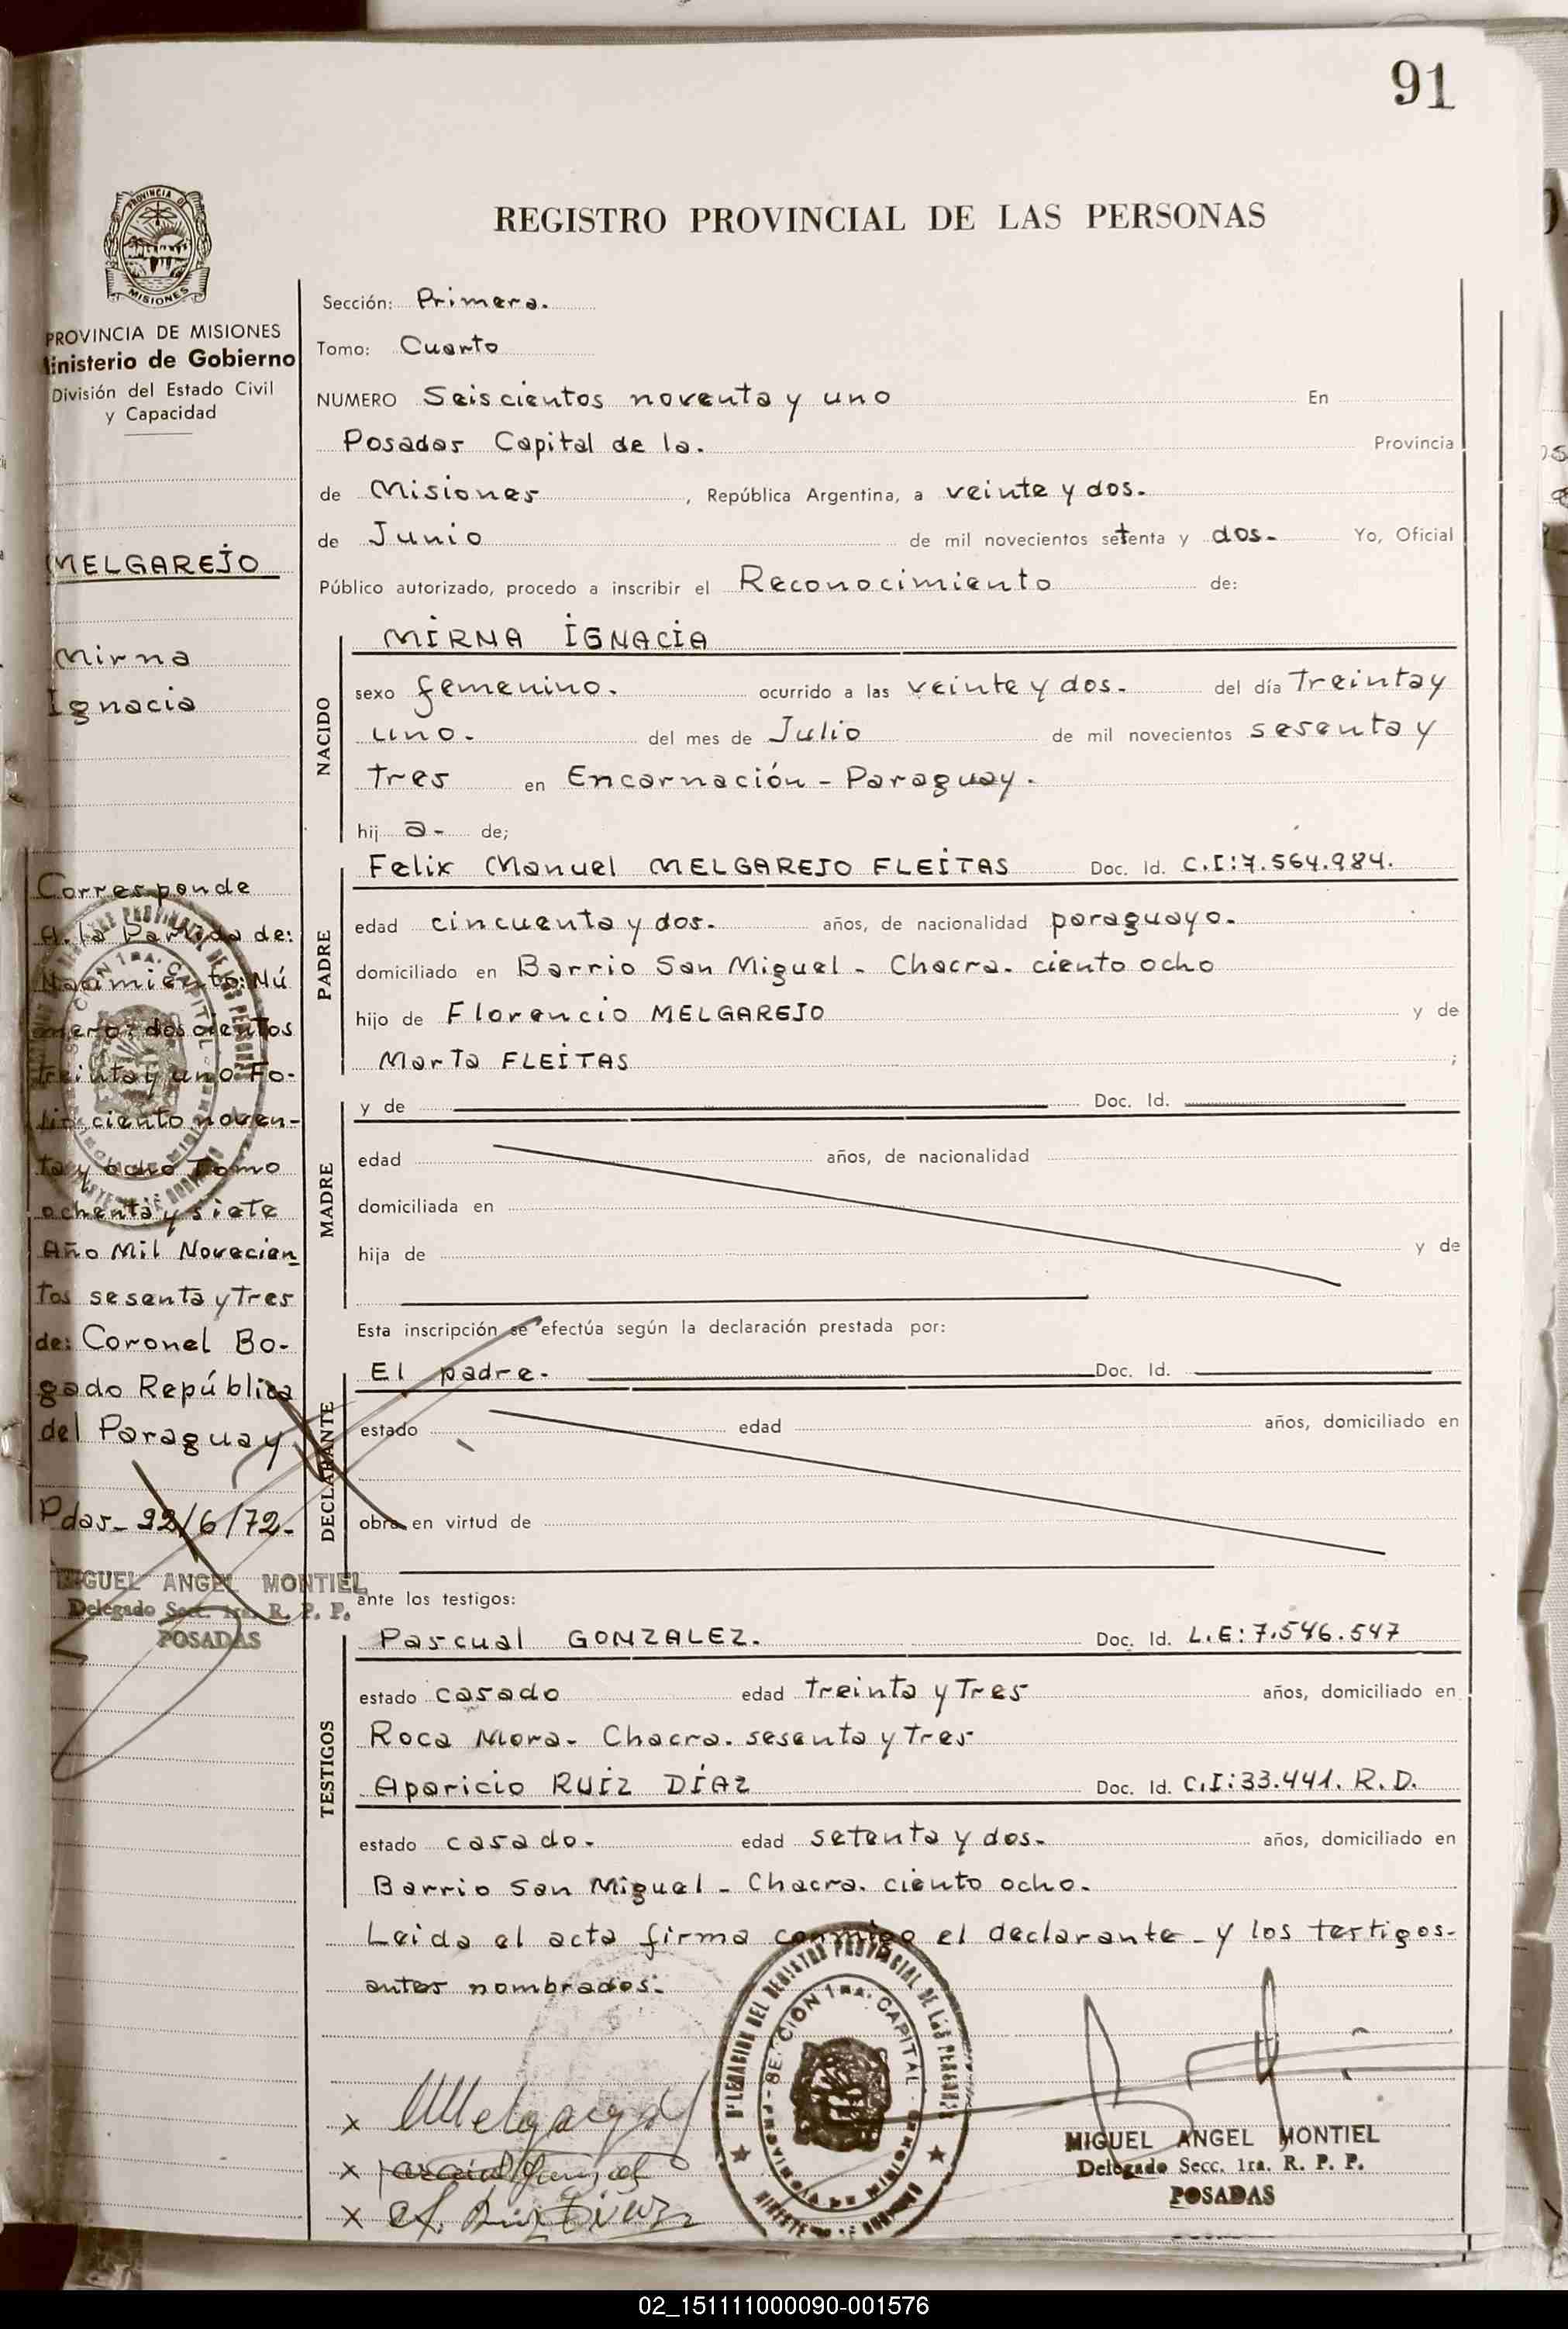 91
REGISTRO PROVINCIAL DE LAS PERSONAS
PROVINCIA DE MISIONES
Ministerio de Gobierno
División del Estado Civil
y Capacidad
MELGAREJO
Mirna
Ignacia
Corresponde
A. la Partida de:
Nacimiento: Nú
mero: doscientos
treinta y uno Fo-
lio ciento noven-
ta y ocho Tomo
ochenta y siete
Año Mil Novecien
tos sesenta y tres
de: Coronel Bo-
gado República
del Paraguay
Pdas- 22/6/72-
MIGUEL ANGEL MONTIEL
Delegado Secc. 1ra. R. P. P.
POSADAS
Sección: Primera.
Tomo: Cuarto
NUMERO Seiscientos noventa y uno En
Posadas Capital de la. Provincia
de Misiones, República Argentina, a veinte y dos.
de Junio de mil novecientos setenta y dos- Yo, Oficial
Público autorizado, procedo a inscribir el Reconocimiento de:
NACIDO
MIRNA IGNACIA
sexo femenino. ocurrido a las veinte y dos. del día treinta y
uno. del mes de Julio de mil novecientos sesenta y
tres en Encarnación - Paraguay.
hij a- de;
PADRE
Felix Manuel MELGAREJO FLEITAS Doc. Id. C.I:7.564.984.
edad cincuenta y dos. años, de nacionalidad paraguayo.
domiciliado en Barrio San Miguel - Chacra. ciento ocho
hijo de Florencio MELGAREJO y de
Marta FLEITAS ;
MADRE
y de Doc. Id.
edad años, de nacionalidad
domiciliada en
hija de y de
Esta inscripción se efectúa según la declaración prestada por:
DECLARANTE
El padre. Doc. Id.
estado edad años, domiciliado en
obra en virtud de
ante los testigos:
TESTIGOS
Pascual GONZALEZ. Doc. Id. L.E:7.546.547
estado casado edad treinta y tres años, domiciliado en
Roca Mora- Chacra. sesenta y tres
Aparicio RUIZ DÍAZ Doc. Id. C.I:33.441. R.D.
estado casado. edad setenta y dos. años, domiciliado en
Barrio San Miguel - Chacra. ciento ocho.
Leida el acta firma conmigo el declarante - y los testigos-
antes nombrados:
x Melgarejo
x
x Ruiz Diaz
SECCION 1ra. CAPITAL
MIGUEL ANGEL MONTIEL
Delegado Secc. 1ra. R. P. P.
POSADAS
02_151111000090-001576